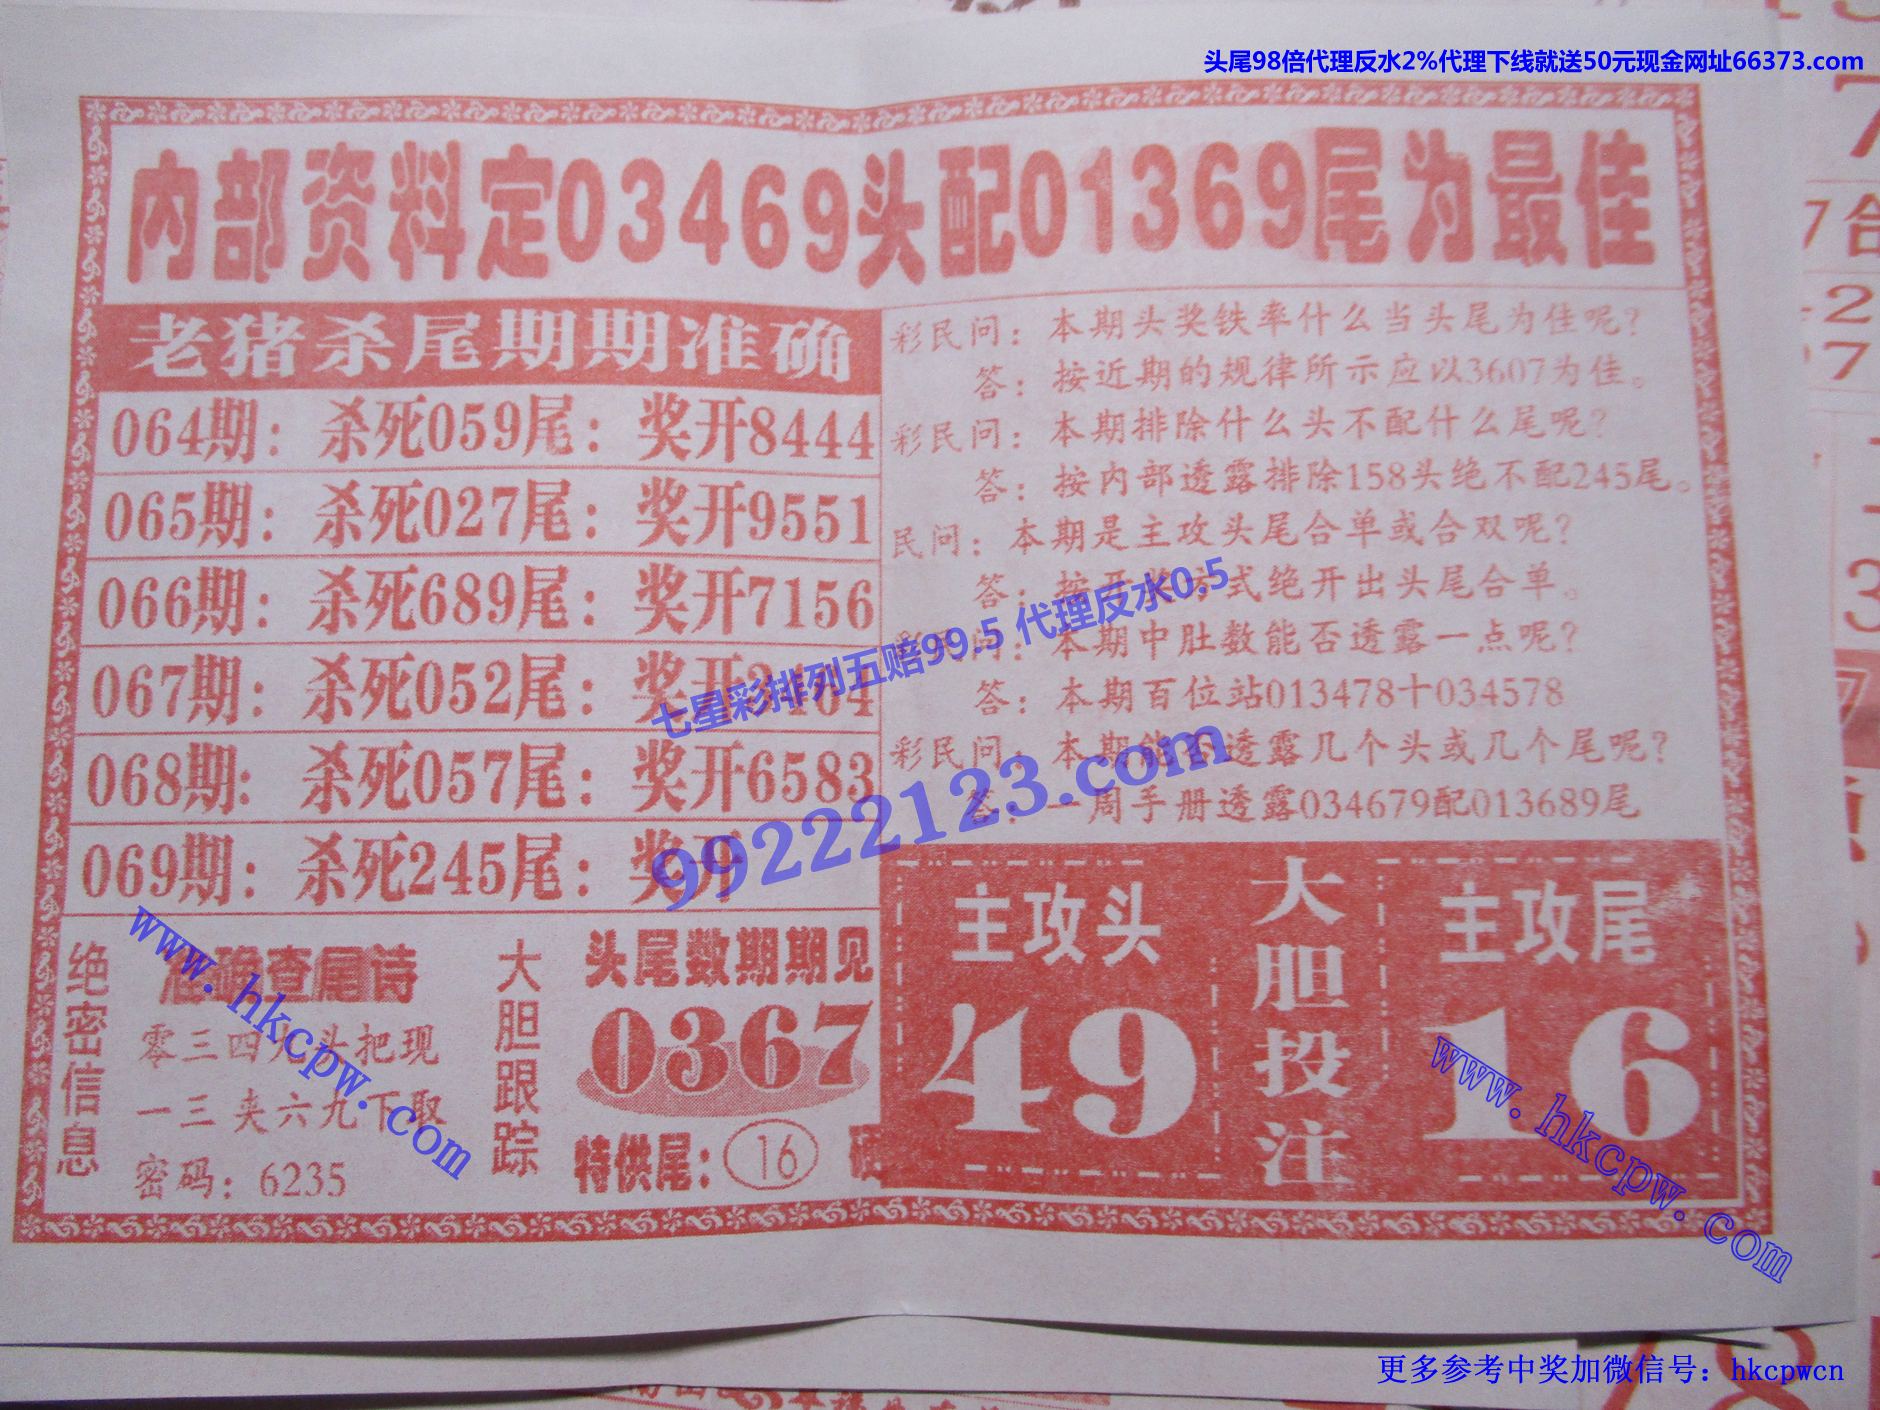 头尾98倍代理反水2%代理下线就送50元现金网址66373.com
内部资料定03469头配01369尾为最佳
老猪杀尾期期准确
064期：杀死059尾：奖开8444
065期：杀死027尾：奖开9551
066期：杀死689尾：奖开7156
067期：杀死052尾：奖开
068期：杀死057尾：奖开6583
069期：杀死245尾：奖开
彩民问：本期头奖铁率什么当头尾为佳呢？
答：按近期的规律所示应以3607为佳。
彩民问：本期排除什么头不配什么尾呢？
答：按内部透露排除158头绝不配245尾。
民问：本期是主攻头尾合单或合双呢？
答：按开奖方式绝开出头尾合单。
彩民问：本期中肚数能否透露一点呢？
答：本期百位站013478十034578
彩民问：本期能否透露几个头或几个尾呢？
答：一周手册透露034679配013689尾
七星彩排列五赔99.5 代理反水0.5
99222123.com
绝密信息
准确查尾诗
零三四九头把现
一三夹六九下取
密码：6235
大胆跟踪
头尾数期期见
0367
特供尾：16
主攻头
49
大胆投注
主攻尾
16
www.hkcpw.com
www.hkcpw.com
更多参考中奖加微信号：hkcpwcn